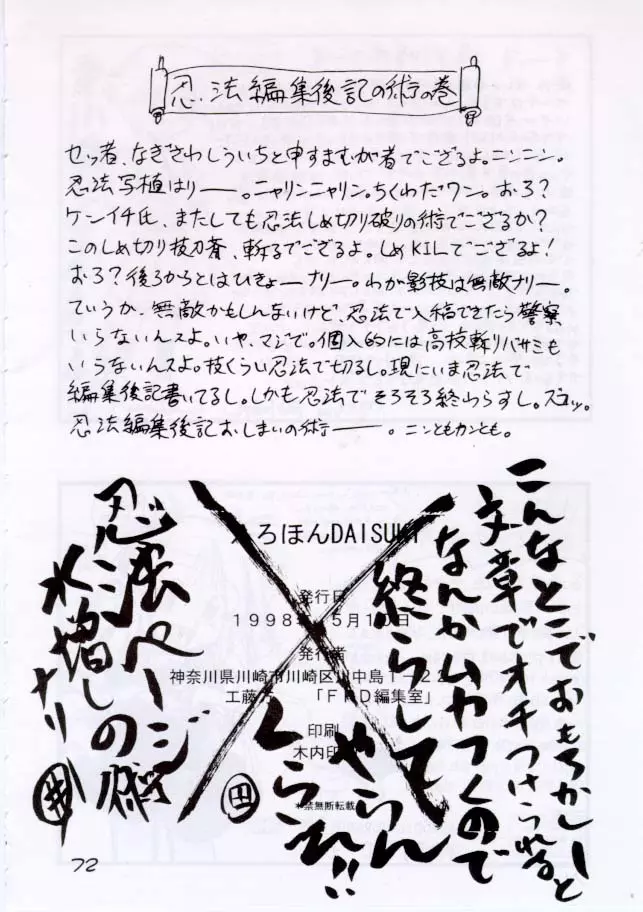 忍法編集後記の術の巻
せっ者、なぎさわしういちと申すまむが者でござるよ。ニンニン。
忍法写植はりー。ニャリンニャリン。ちくわだワン。おろ?
ケンイチ氏、またしても忍法しめ切り破りの術でござるか?
このしめ切り抜刀斎、斬るでござるよ。しめKILでござるよ!
おろ?後ろからとはひきょーナリー。わが影技は無敵ナリー。
ていうか、無敵かもしんまいけど、忍法で入稿できたら警察
いらないんスよ。いや、マジで。個人的には高枝斬りバサミも
いうないんスよ。枝くらい忍法で切るし。現にいま忍法で
編集後記書いてるし。しかも忍法でそろそろ終わらすし。ズコッ。
忍法編集後記おしまいの術ー。ニンともカンとも。
こんなとこでおもろかしーと
文章でオチつけられると
なんかムカつくので
終らして
やらん
くらえ!!
田
ろほんDAISUKI
発行日
1998年5月10日
発行者
神奈川県川崎市川崎区川中島1-22
工藤 「F D編集室」
印刷
木内印
*禁無断転載
忍法ページ
水増しの術
ナリ
井
72